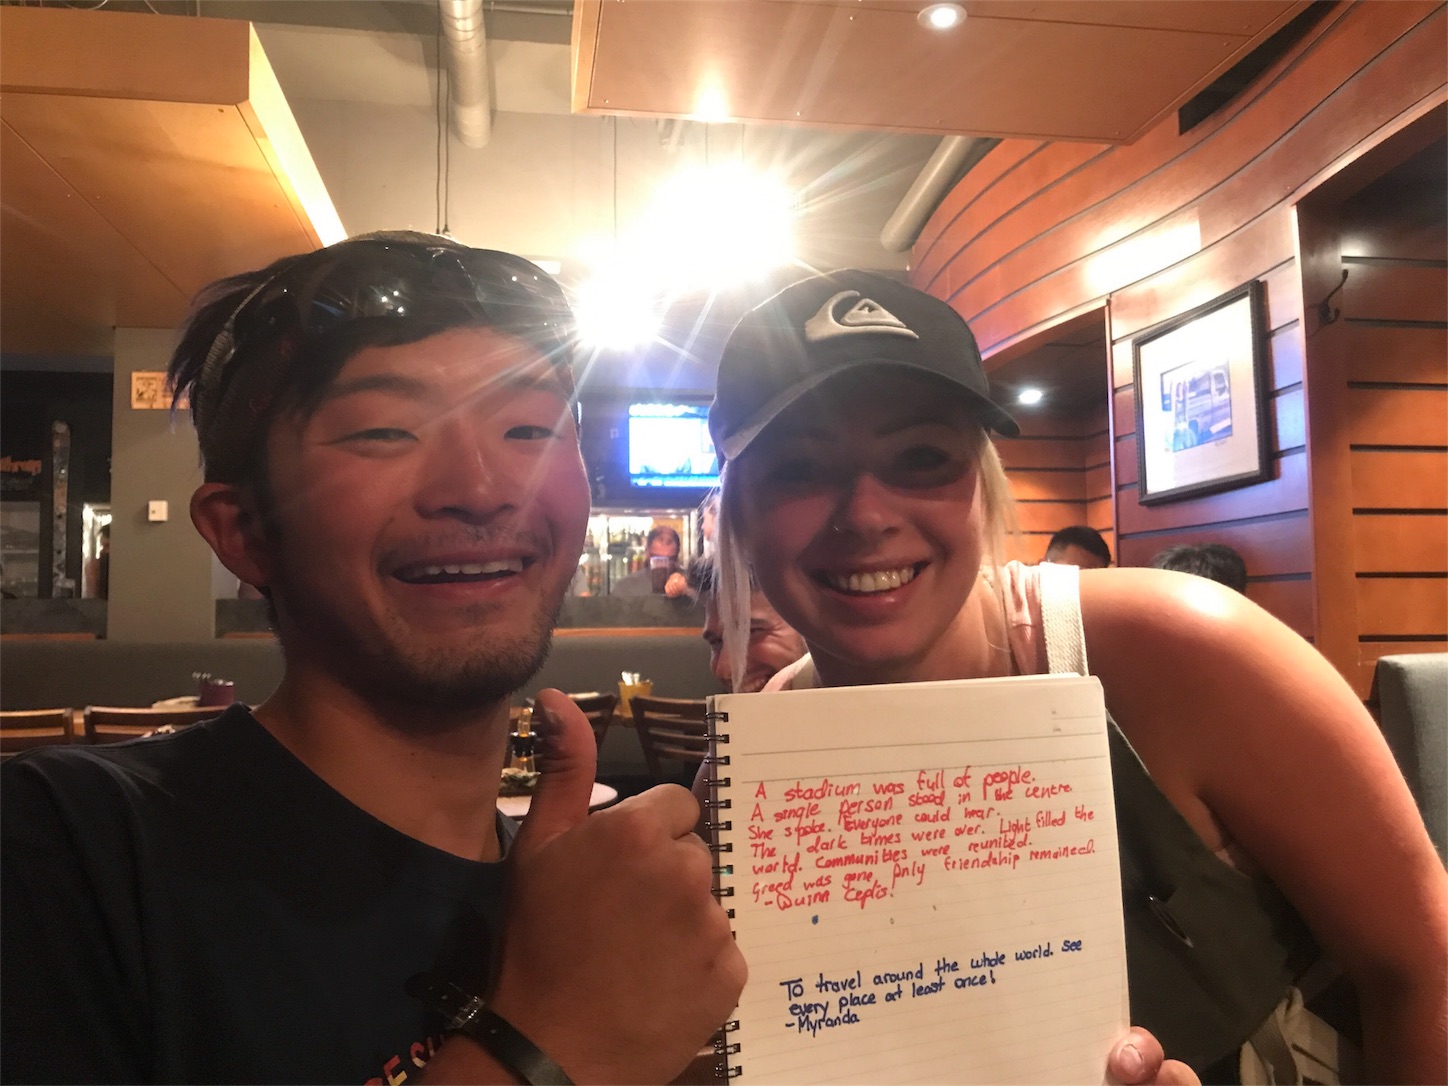 A stadium was full of people.
A single person stood in the centre.
She spoke. Everyone could hear.
The dark times were over. Light filled the
world. Communities were reunited.
Greed was gone, only friendship remained.
-Quinn
To travel around the whole world. See
every place at least once!
-Myranda